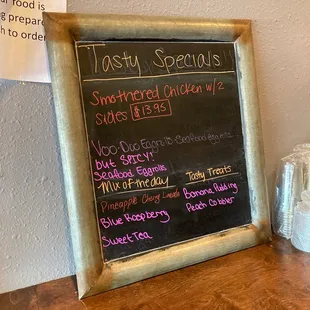 r food is
ng prepare
sh to order
Tasty Specials
Smothered Chicken w/2
sides $13.95
Voo-Doo Eggrolls-Seafood Eggrolls
but SPICY!
Seafood Eggrolls
Mix of the day
Pineapple Cherry Limeade
Blue Raspberry
Sweet Tea
Tasty Treats
Banana Pudding
Peach Cobbler